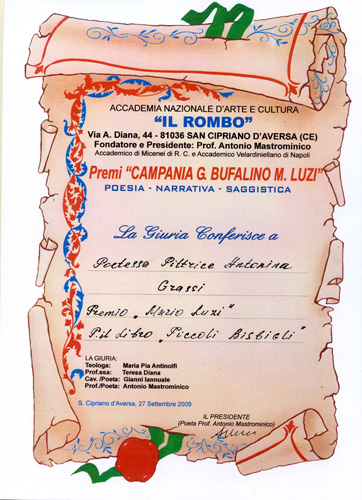 ACCADEMIA NAZIONALE D'ARTE E CULTURA
"IL ROMBO"
Via A. Diana, 44 - 81036 SAN CIPRIANO D'AVERSA (CE)
Fondatore e Presidente: Prof. Antonio Mastrominico
Accademico di Micenei di R. C. e Accademico Velardiniellano di Napoli
Premi "CAMPANIA G. BUFALINO M. LUZI"
POESIA - NARRATIVA - SAGGISTICA
La Giuria Conferisce a
Poetessa Pittrice Antonina
Grassi
Premio "Mario Luzi"
P.il libro "Piccoli Bisbigli"
LA GIURIA:
Teologa: Maria Pia Antinolfi
Prof.ssa: Teresa Diana
Cav./Poeta: Gianni Iannuale
Prof./Poeta: Antonio Mastrominico
S. Cipriano d'Aversa, 27 Settembre 2009
IL PRESIDENTE
(Poeta Prof. Antonio Mastrominico)